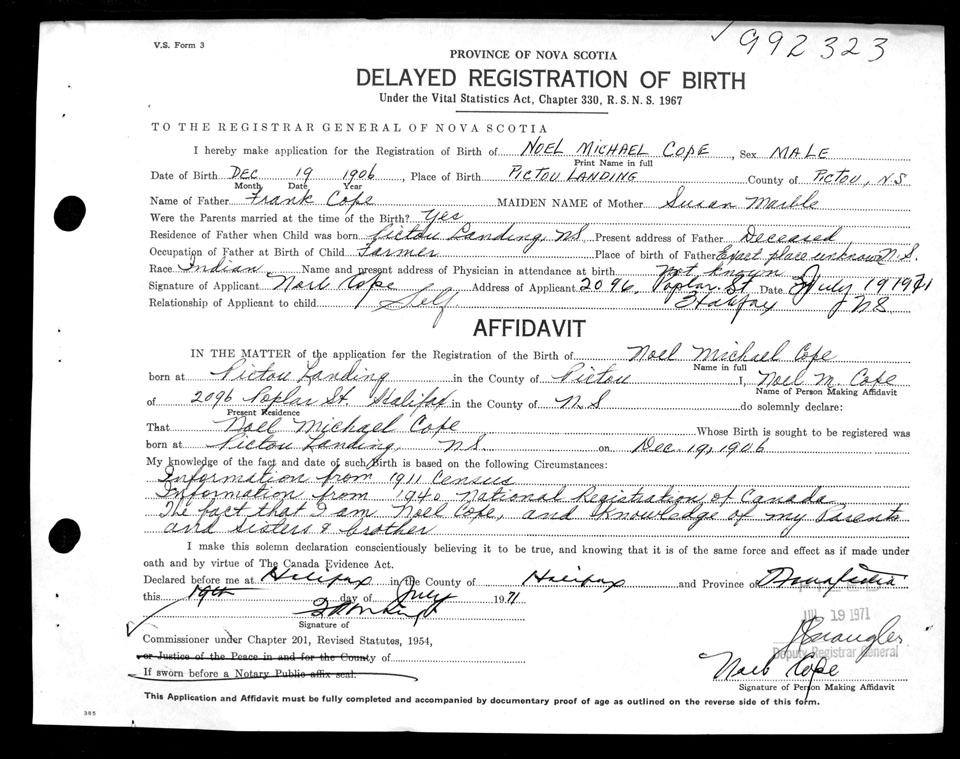 V.S. Form 3
✓ 992323
PROVINCE OF NOVA SCOTIA
DELAYED REGISTRATION OF BIRTH
Under the Vital Statistics Act, Chapter 330, R. S. N. S. 1967
TO THE REGISTRAR GENERAL OF NOVA SCOTIA
I hereby make application for the Registration of Birth of NOEL MICHAEL COPE, Sex MALE
Print Name in full
Date of Birth DEC 19 1906, Place of Birth PICTOU LANDING County of PICTOU, N.S
Month Date Year
Name of Father Frank Cope MAIDEN NAME of Mother Susan
Were the Parents married at the time of the Birth? Yes
Residence of Father when Child was born Pictou Landing, NS Present address of Father Deceased
Occupation of Father at Birth of Child Farmer Place of birth of Father Exact place unknown N.S.
Race Indian Name and present address of Physician in attendance at birth Not known
Signature of Applicant Noel Cope Address of Applicant 2096 Poplar St Date July 19 1971
Relationship of Applicant to child Self Halifax NS
AFFIDAVIT
IN THE MATTER of the application for the Registration of the Birth of Noel Michael Cope
Name in full
born at Pictou Landing in the County of Pictou I, Noel M. Cope
Name of Person Making Affidavit
of 2096 Poplar St. Halifax in the County of N.S do solemnly declare:
Present Residence
That Noel Michael Cope Whose Birth is sought to be registered was
born at Pictou Landing, NS. on Dec. 19, 1906
My knowledge of the fact and date of such Birth is based on the following Circumstances:
Information from 1911 Census
Information from 1940 National Registration of Canada
The fact that I am Noel Cope, and knowledge of my Parents
and sisters & brother
I make this solemn declaration conscientiously believing it to be true, and knowing that it is of the same force and effect as if made under
oath and by virtue of The Canada Evidence Act.
Declared before me at Halifax in the County of Halifax and Province of Nova Scotia
this 19th day of July 1971
Signature of
JUL 19 1971
Commissioner under Chapter 201, Revised Statutes, 1954,
or Justice of the Peace in and for the County of
Deputy Registrar General
If sworn before a Notary Public affix seal.
Noel Cope
Signature of Person Making Affidavit
This Application and Affidavit must be fully completed and accompanied by documentary proof of age as outlined on the reverse side of this form.
385